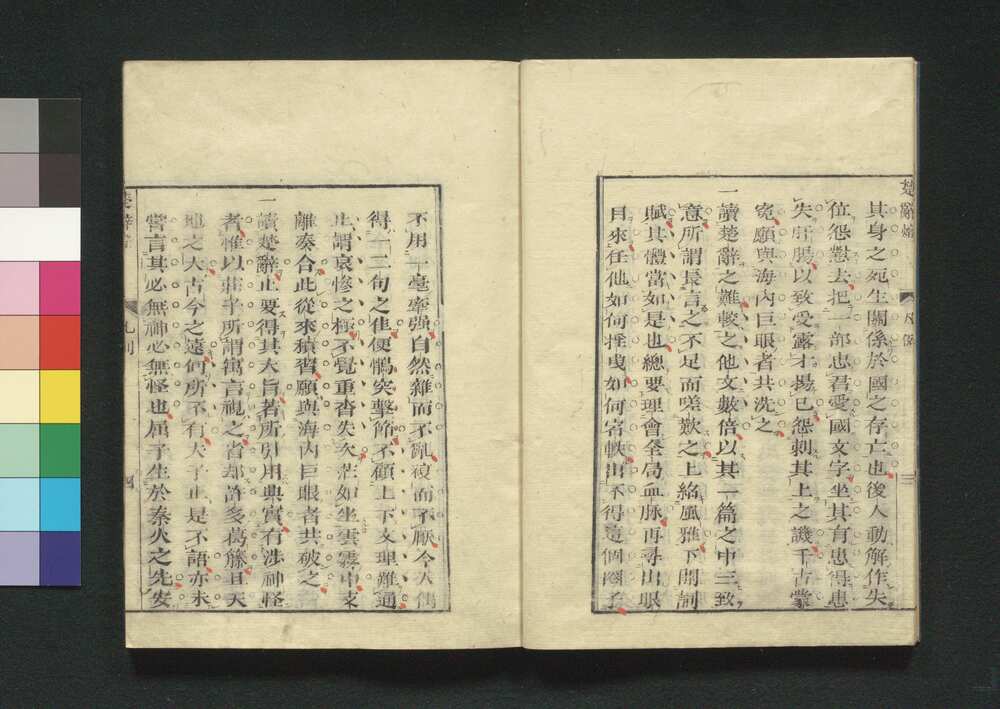 其身之死生關係於國之存亡也後人動解作失
位怨懟去把一部忠君愛國文字坐其有患得患
失肝腸以致受露才揚己怨刺其上之譏千古蒙
冤願與海內巨眼者共洗之
一讀楚辭之難較之他文數倍以其一篇之中三致
意所謂長言之不足而嗟歎之上紹風雅下開詞
賦其體當如是也總要理會全局血脉再尋出眼
目來任他如何搖曳如何宕軼出不得這個圈子
不用一毫牽强自然雜而不亂複而不厭今人偶
得一二句之佳便鶻突擊節不顧上下文理難通
止謂哀慘之極不覺重沓失次茫如坐雲霧中支
離湊合此從來積習願與海內巨眼者共破之
一讀楚辭止要得其大旨若所引用典實有涉神怪
者惟以莊子所謂寓言視之省却許多葛藤且天
地之大古今之遠何所不有夫子止是不語亦未
嘗言其必無神必無怪也屈子生於秦火之先安